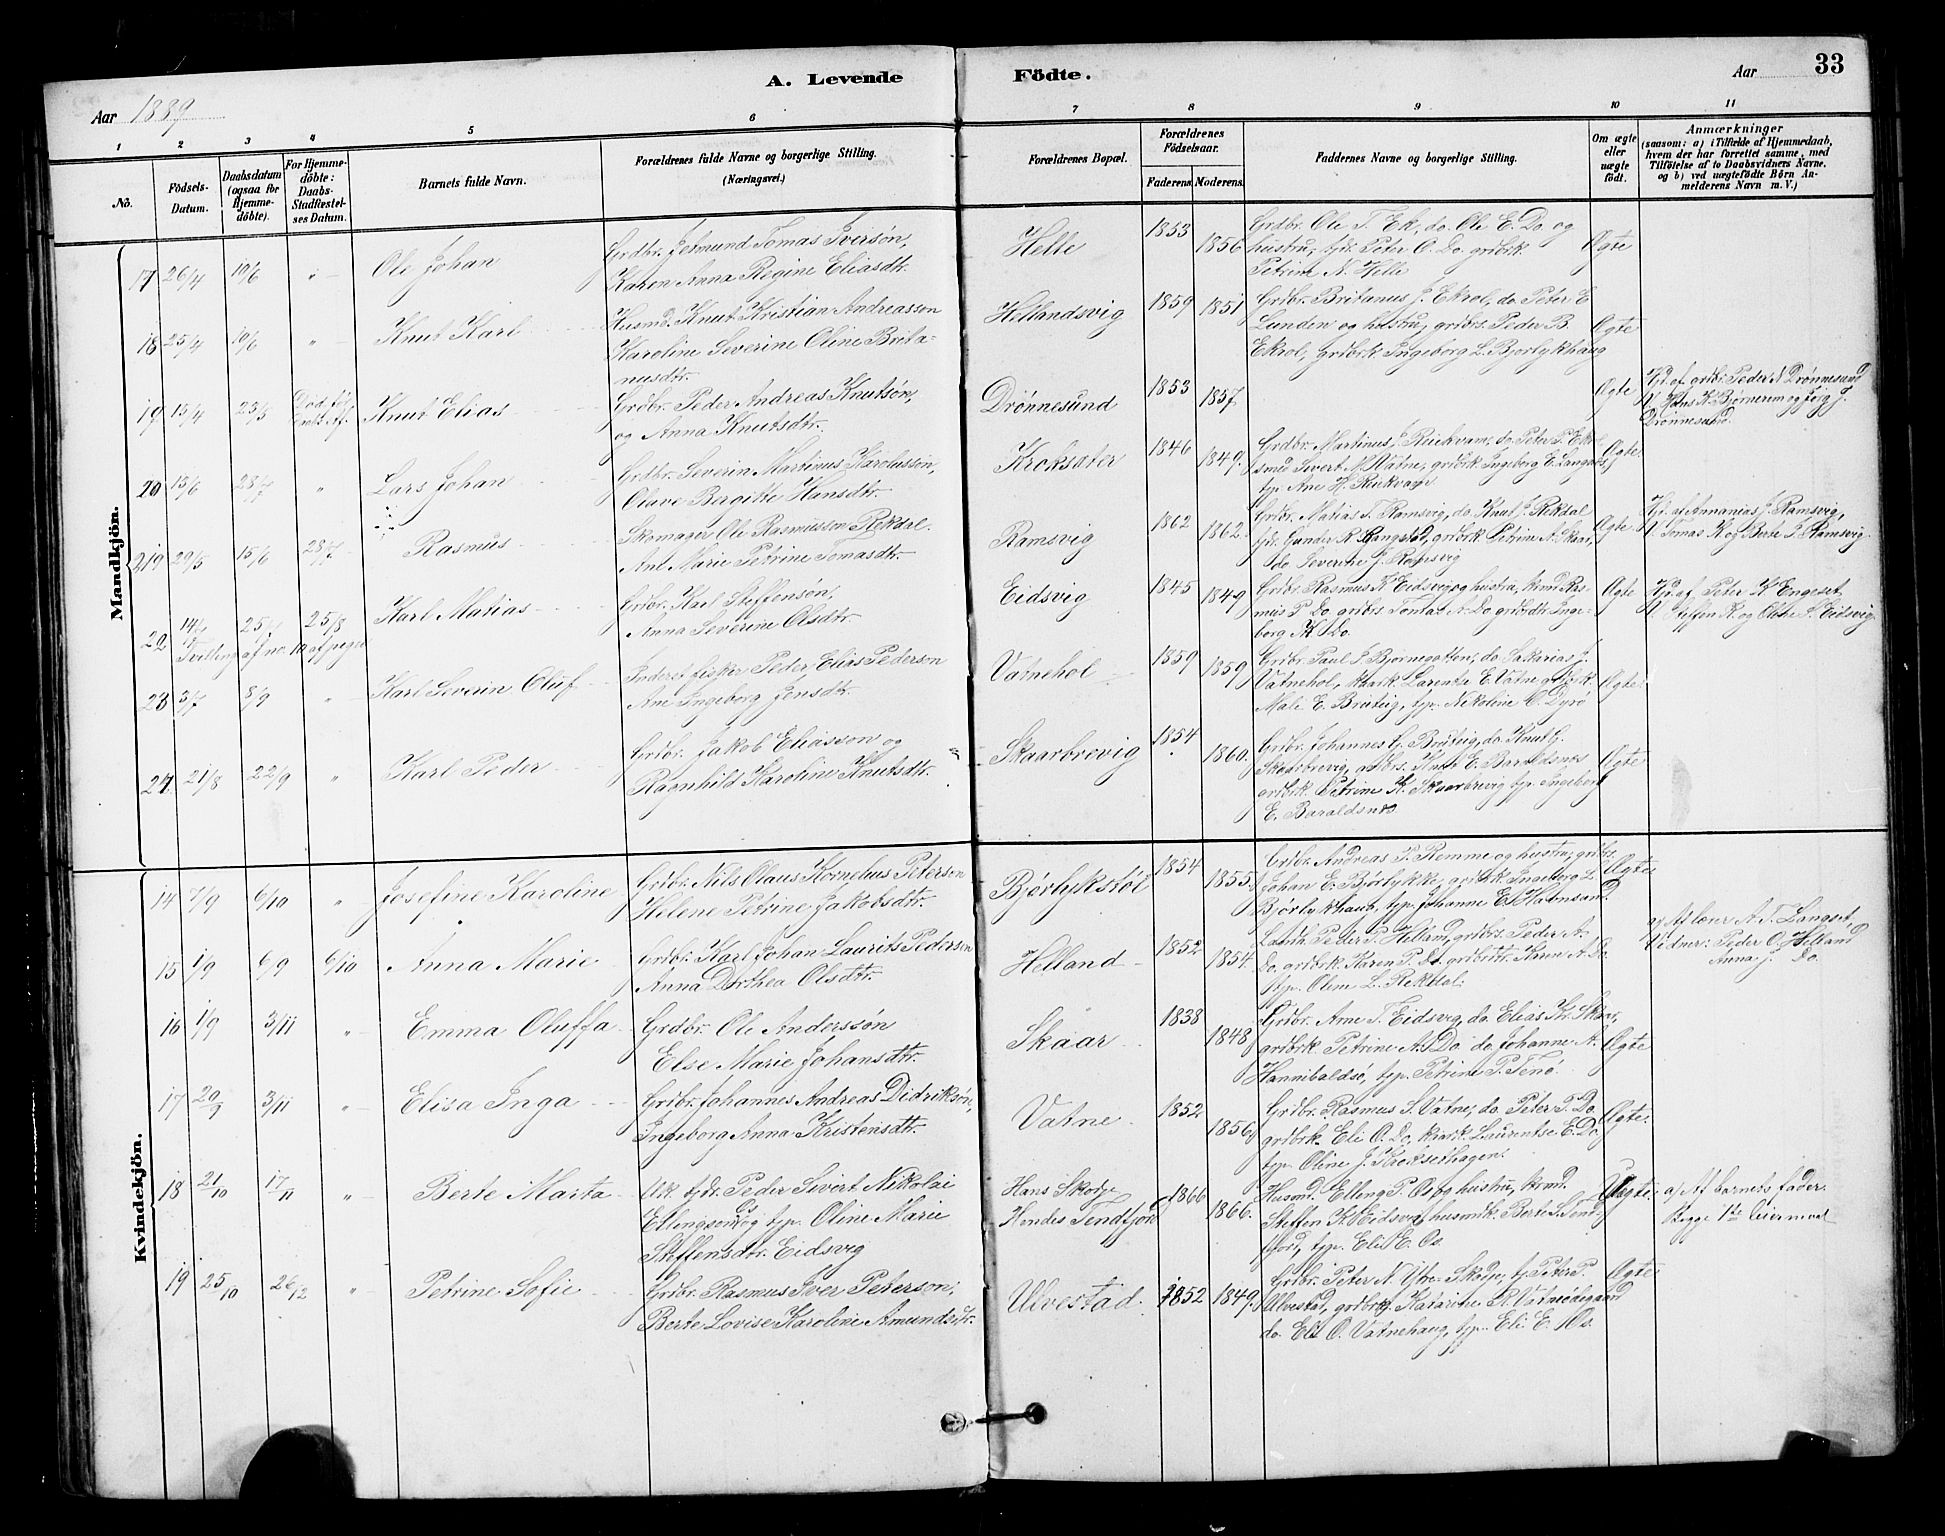 A. Levende Födte.
Aar 33
Aar 1889
1 2 3 4 5 6 7 8 9 10 11
No.
Födsels-Datum.
Daabsdatum (ogsaa for Hjemme-döbte).
For Hjemme-döbte: Daabs-Stadfæstel-ses Datum.
Barnets fulde Navn.
Forældrenes fulde Navne og borgerlige Stilling.
(Næringsvei.)
Forældrenes Bopæl.
Forældrenes Födselsaar.
Faderens. Moderens.
Faddernes Navne og borgerlige Stilling.
Om ægte eller uægte födt.
Anmærkninger
(saasom: a) i Tilfælde af Hjemmedaab, hvem der har forrettet samme, med Tilföielse af to Daabsvidners Navne. og b) ved uægtefödte Börn An-melderens Navn m. V.)
Mandkjön.
17 26/4 10/6 " Ole Johan
Grdbr. Jetmund Tomas Iversøn,
Karen Anna Regine Eliasdtr.
Helle 1853 1856
Grdbr. Ole T. Ek, do. Ole E. Do og
hustru, tjdr. Peter O. Do. grdbrk.
Petrine N. Helle
Ægte
18 25/4 10/6 " Knut Karl
Husmd. Knut Kristian Andreassøn
Karoline Severine Oline Brita-
nusdtr.
Hellandsvig 1859 1851
Grdbr. Britanus J. Ekrol, do. Peter E
Lunden og hustru, grdbrs. Peder B.
Ekrol, grdbrk Ingeborg L. Bjørlykhaug
Ægte
19 15/4 23/5 Død før Knut Elias
Grdbr. Peder Andreas Knutsøn,
og Anna Knutsdtr.
Drønnesund 1853 1857
Ægte
Hjd. af grdbr. Peder N Drønnesund
V. Hans K. Bjørnerem og Jørg J.
Drønnesund.
20 15/6 28/7 " Lars Johan
Grdbr. Severin Martinus Karolussøn,
Olave Bergitte Hansdtr.
Kroksæter 1846 1849.
Grdbr. Martinus J. Ruekvam, do. Peter P. Ekre
smed Sivert M. Vatne, grdbrk Ingeborg E. Langnes,
tjp. Ane H. Ruekvam
Ægte
21 29/5 15/6 28/7 Rasmus
Skomager Ole Rasmusson Rekdal.
Ane Marie Petrine Tomasdtr.
Ramsvig 1862 1862.
Grdbr. Matias T. Ramsvig, do. Knut J. Rekdal
tjdr. Gunder R. Rangstad, grdbrk Petrine A. Skaar,
do Severine J. Ramsvig
Ægte
Hjd. af Annanias J. Ramsvig,
V. Tomas K. og Berte J. Ramsvig.
22 14/7 25/7 25/8 Karl Matias
Tvilling af no. 10 af piger
Grdbr. Karl Steffensøn,
Anna Severine Olsdtr.
Eidsvig 1845 1849
Grdbr. Rasmus K Eidsvig og hustru, krmd Ras-
mus P Do, grdbrs Tomas A. Do grdbrdtr Inge-
borg K Do.
Ægte
Hjd. af Peter K Engeset,
V. Steffen K. og Oline S. Eidsvig.
23 3/7 8/9 " Karl Severin Oluf
Inderst fisker Peder Elias Pederson
Ane Ingeborg Jonsdtr.
Vatnehol 1859 1859
Grdbr. Paul J Bjørnegotten, do. Sakarias J.
Vatnehol, kaark. Larentse E. Vatne, grdbrk.
Mali E. Bruteig, tjp. Nikoline O. Dyrø
Ægte
24 21/8 22/9 " Karl Peder
Grdbr. Jakob Eliasson og
Ragnhild Karoline Knutsdtr.
Skaarbrevig 1854 1860
Grdbr. Johannes G. Bruteig, do. Knut G.
Skaarbrevig, grdbrs. Knut E. Baraldsnes
grdbrk. Petrine K. Skaarbrevig tjp. Ingeborg
E. Baraldsnes
Ægte
Kvindekjön.
14 7/9 6/10 " Josefine Karoline
Grdbr. Nils Olaus Kornelius Peterson
Helene Petrine Jakobsdtr.
Bjørlykstøl 1854 1855
Grdbr. Andreas P. Remme og hustru, grdbr.
Johan E. Bjørlykke, grdbrk. Ingeborg L.
Bjørlykhaug, tjp. Johanne E. Holmsund
Ægte
15 1/9 6/9 6/10 Anna Marie
Grdbr. Karl Johan Laurits Pederson
Anna Dorthea Olsdtr.
Helland 1852 1854
Peder P. Helland, grdbrs. Peder A.
Do, grdbrk. Karen P. Do. grdbrdtr. Karen A. Do.
tjp. Oline L. Rekdal.
a) Af lærer A. T. Langset,
vidner: Peder O. Helland
Anna J. Do.
16 1/9 3/11 " Emma Oluffa
Grdbr. Ole Anderssøn
Else Marie Johansdtr.
Skaar 1838 1848
Grdbr. Arne T. Eidsvig, do. Elias Kr. Skaar,
grdbrk. Petrine A. Do do. Johanne A.
Hannibaldsø, tjp. Petrine P. Tenø.
Ægte
17 20/9 3/11 " Elisa Inga
Grdbr. Johannes Andreas Didriksøn,
Ingeborg Anna Kristensdtr.
Vatne 1852 1856
Grdbr. Rasmus S. Vatne, do. Peter P. Do
grdbrk. Eli O. Do, kaark. Laurentse E. Do
tjp. Oline J. Kroksethagen.
Ægte
18 21/10 17/11 " Berte Marta
Uk. tjdr. Peder Sivert Nikolai
Ellingsen Os og tjp. Oline Marie
Steffensdtr. Eidsvig
Hans Skodje
Hendes Tendfjord 1866 1866.
Husmd. Elling P. Os og hustru, krmd.
Steffen K. Eidsvig, husmk. Berte S. Tend-
fjord, tjp. Eli E. Os.
Uægte
a) Af barnets fader.
Begge 1ste leiermaal
19 25/10 26/12 " Petrine Sofie
Grdbr. Rasmus Iver Peterson,
Berte Lovise Karoline Amundsdtr.
Ulvestad 1852 1849
Grdbr. Peter N. Ytre-Skodje, tj Peter P.
Ulvestad, grdbrk. Katarine R. Vatnødegaard
do. Eli O. Vatnehaug, tjp. Eli E. Os.
Ægte